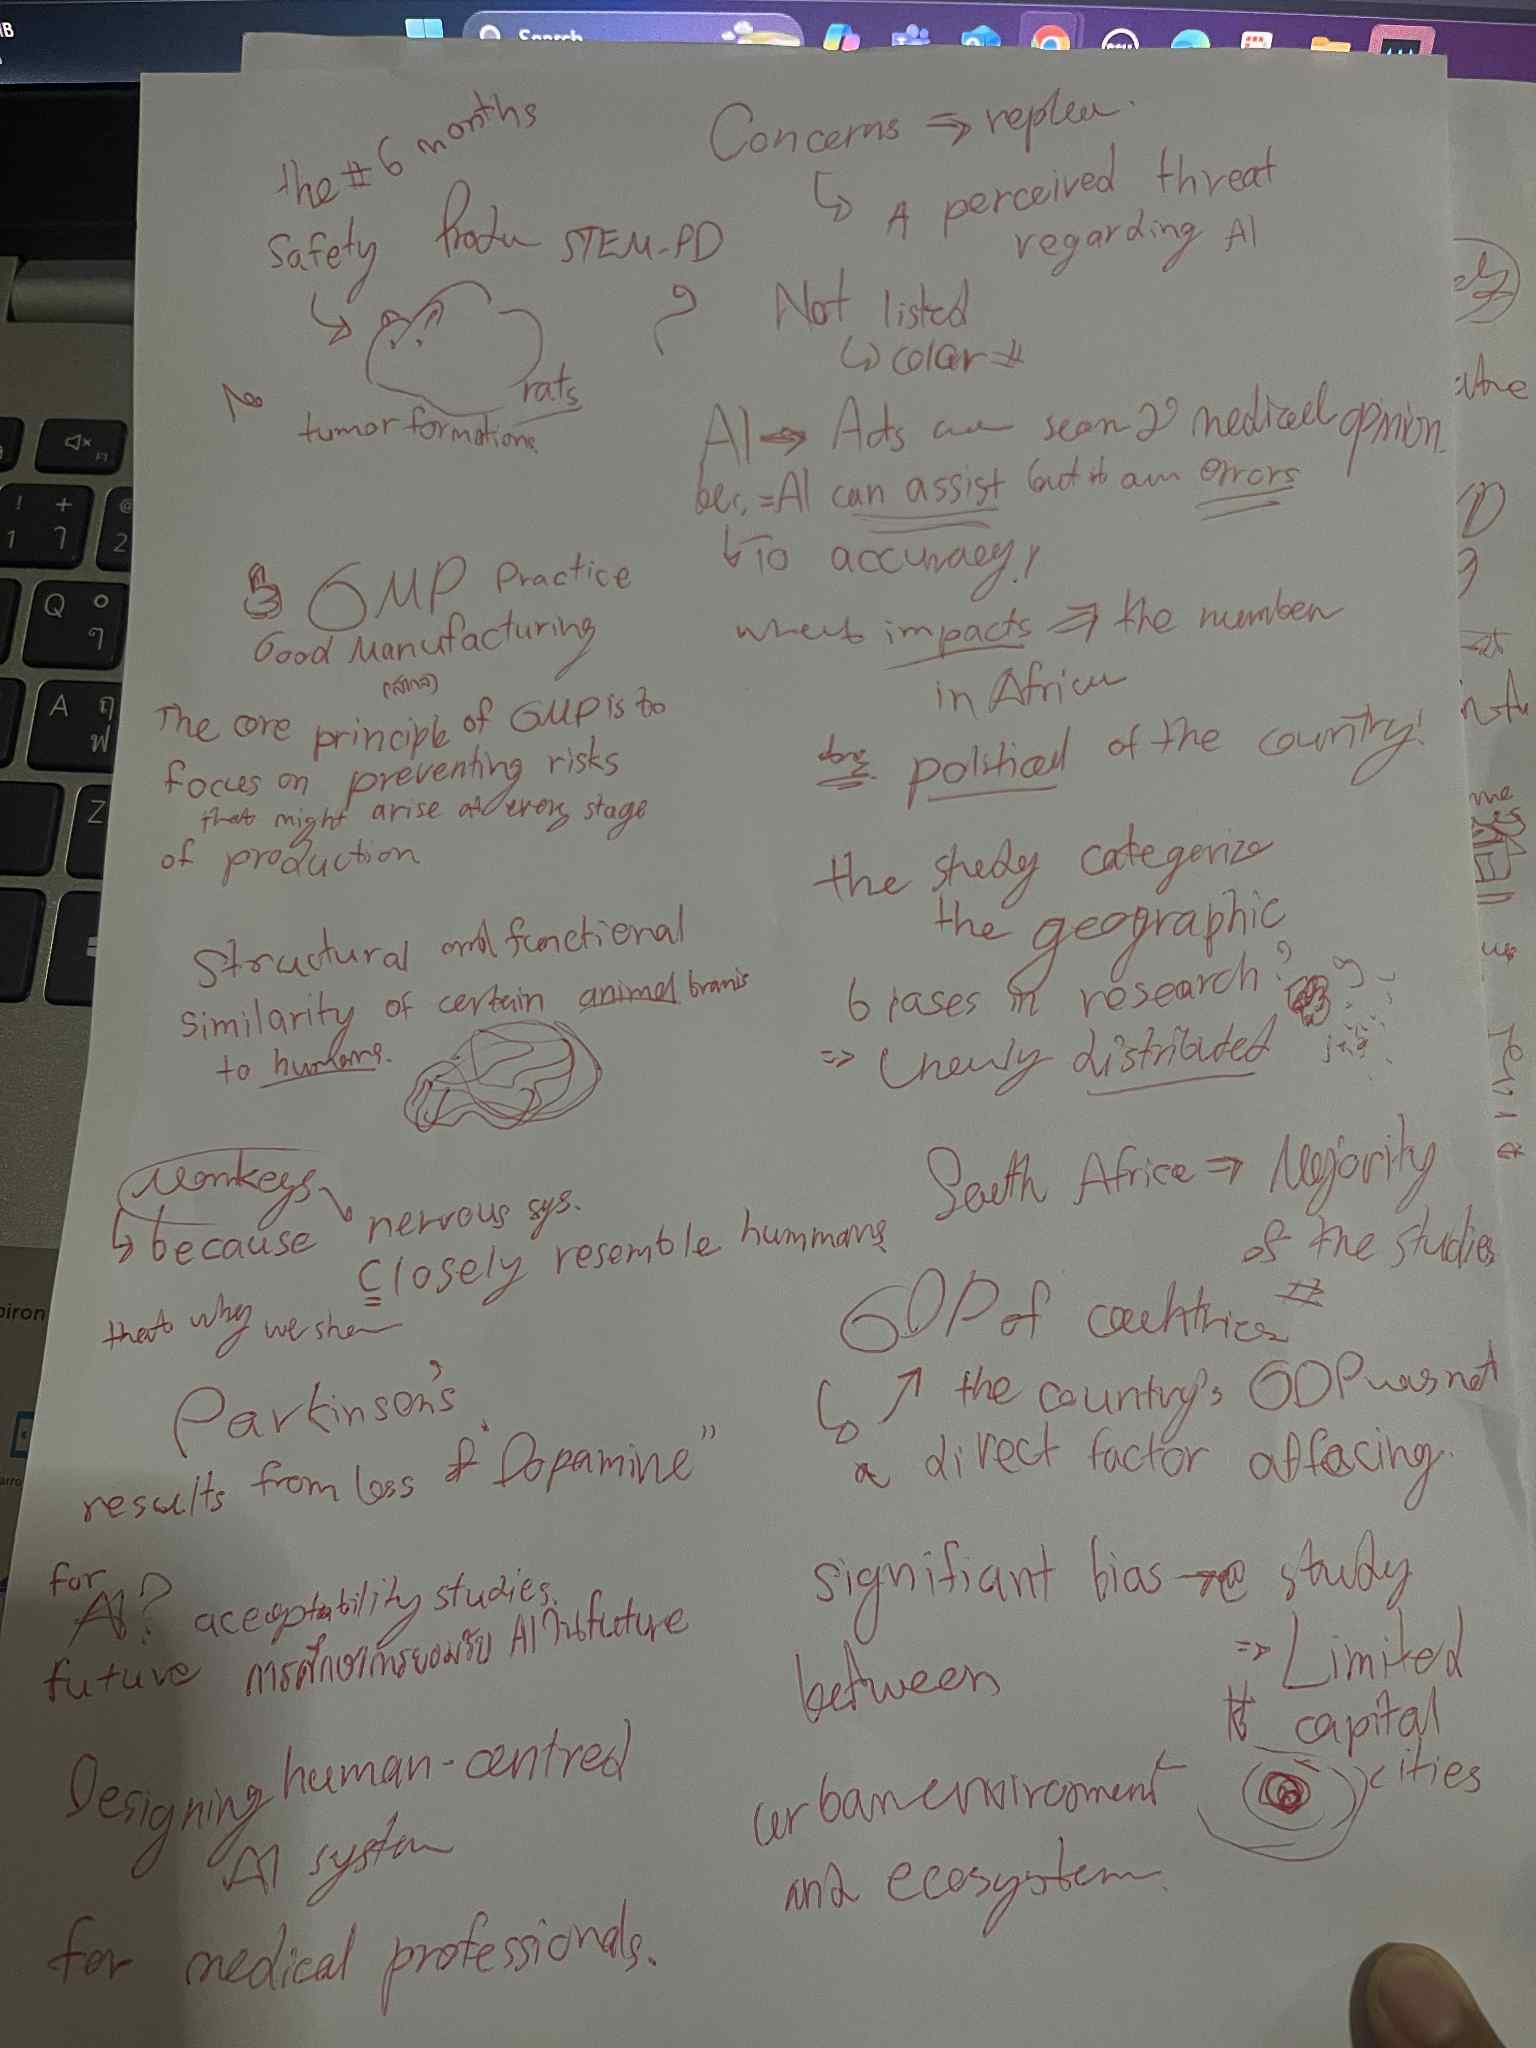 the # 6 months
Safety STEM-PD
rats
No
tumor formations
GMP Practice
Good Manufacturing
(สากล)
The core principle of GMP is to
focus on preventing risks
that might arise at every stage
of production
Structural and functional
similarity of certain animal branis
to humans.
Monkeys
because nervous sys.
Closely resemble hummans
that why we
Parkinson's
results from loss of "Dopamine"
for
AI? acceptability studies.
future การศึกษาการยอมรับ AI ในfuture
Designing human-centred
AI system
for medical professionals.
Concerns ⇒
A perceived threat
regarding AI
? Not listed
AI ⇒ Acts 2° medical opinion
AI can assist but errors
To accuracy!
impacts ⇒ the number
in Africa
of the country!
the study categorize
the geographic
biases in research?
⇒ distributed
South Africa ⇒ Majority
of the studies
#
GDP of countries
↗ the country's GDP was not
a direct factor
significant bias study
between ⇒ Limited
capital
cities
urban environment
and ecosystem.
Search